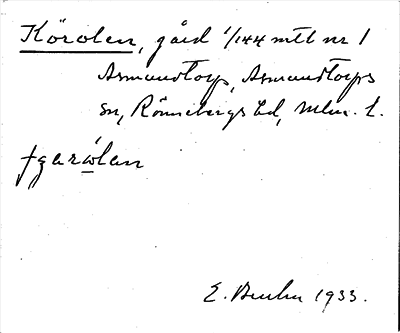 Körolen, gård 1/144 mtl nr 1
Asmundtorp, Asmundtorps
sn, Rönnebergs hd, Mlm. l.
E. 1933.